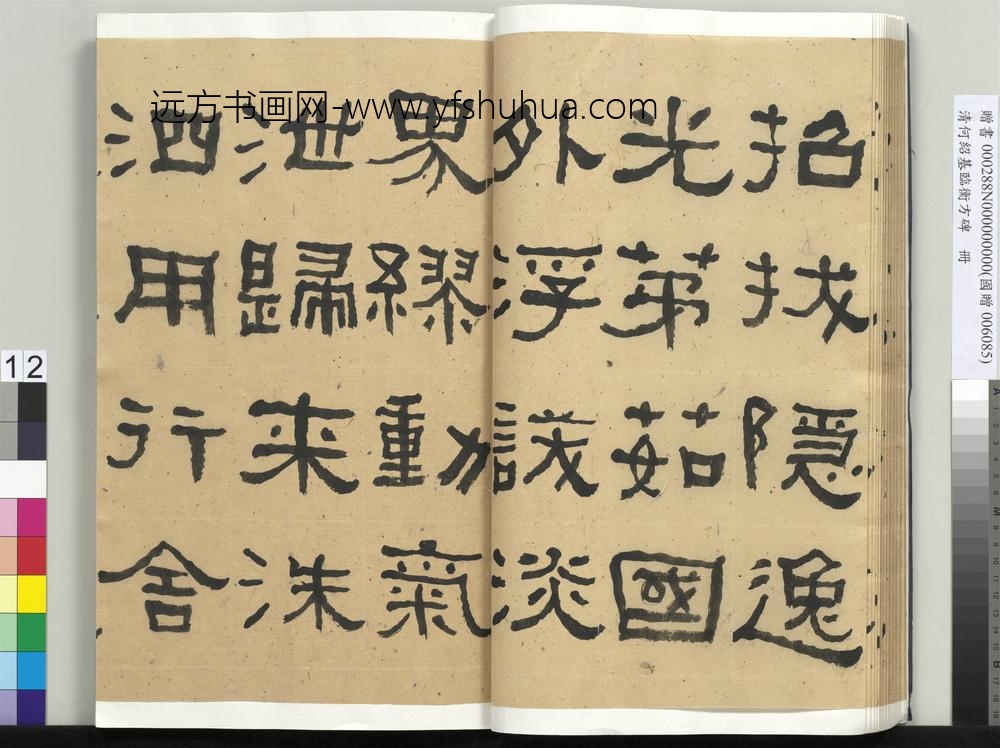 招拔隱逸
光茀茹國
外浮䜟淡
界繆動氣
泄歸来洙
泗用行舍
远方书画网-www.yfshuhua.com
贈書 000288N000000000(國贈 006085)
清何紹基臨衡方碑 冊
12